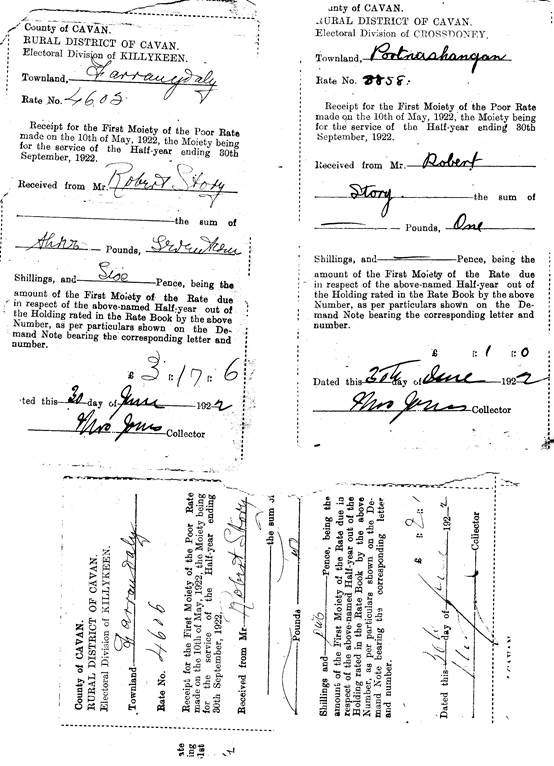 County of CAVAN.
RURAL DISTRICT OF CAVAN.
Electoral Division of KILLYKEEN.
Townland, Farrangdaly
Rate No. 4605
Receipt for the First Moiety of the Poor Rate
made on the 10th of May, 1922, the Moiety being
for the service of the Half-year ending 30th
September, 1922.
Received from Mr. Robert Story
the sum of
Three Pounds, Seventeen
Shillings, and Six Pence, being the
amount of the First Moiety of the Rate due
in respect of the above-named Half-year out of
the Holding rated in the Rate Book by the above
Number, as per particulars shown on the De-
mand Note bearing the corresponding letter and
number.
£ 3 : 17 : 6
ted this 30 day of June 1922
Collector
unty of CAVAN.
RURAL DISTRICT OF CAVAN.
Electoral Division of CROSSDONEY.
Townland, Portnashangan
Rate No. 3858.
Receipt for the First Moiety of the Poor Rate
made on the 10th of May, 1922, the Moiety being
for the service of the Half-year ending 30th
September, 1922.
Received from Mr. Robert
Story the sum of
Pounds, One
Shillings, and Pence, being the
amount of the First Moiety of the Rate due
in respect of the above-named Half-year out of
the Holding rated in the Rate Book by the above
Number, as per particulars shown on the De-
mand Note bearing the corresponding letter and
number.
£ : 1 : 0
Dated this 30th day of June 1922
Collector
County of CAVAN.
RURAL DISTRICT OF CAVAN.
Electoral Division of KILLYKEEN.
Townland Farrandaly
Rate No. 4606
Receipt for the First Moiety of the Poor Rate
made on the 10th of May, 1922, the Moiety being
for the service of the Half-year ending
30th September, 1922.
Received from Mr. Robert Story
the sum of
Pounds
Shillings and Pence, being the
amount of the First Moiety of the Rate due in
respect of the above-named Half-year out of the
Holding rated in the Rate Book by the above
Number, as per particulars shown on the De-
mand Note bearing the corresponding letter
and number.
£
Dated this day of June 1922
Collector